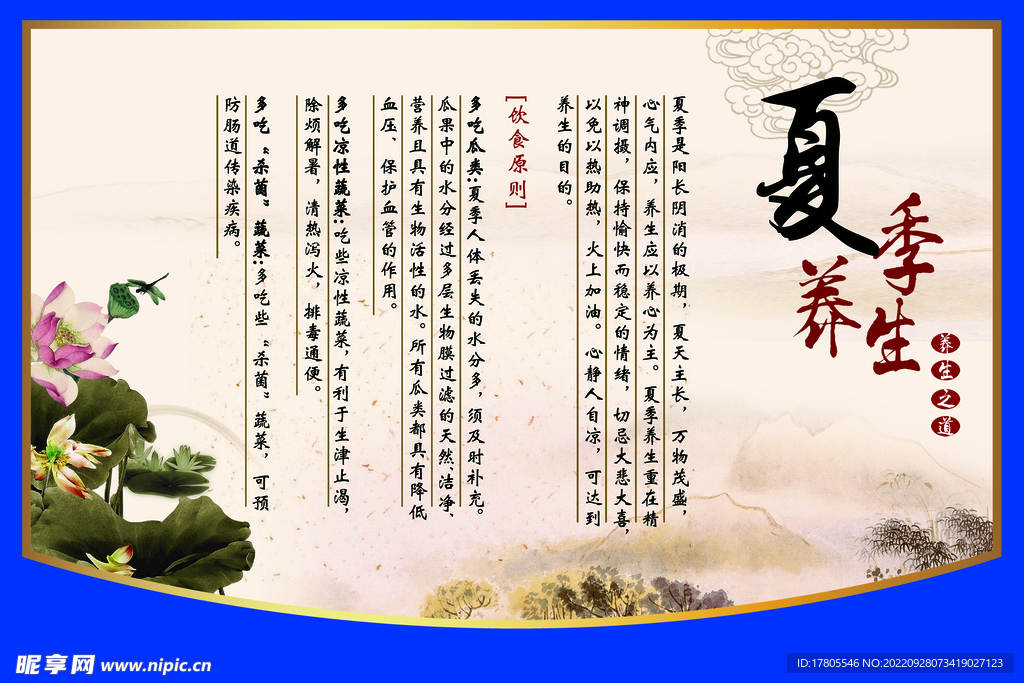 夏
季
养生
养生之道
夏季是阳长阴消的极期，夏天主长，万物茂盛，
心气内应，养生应以养心为主。夏季养生重在精
神调摄，保持愉快而稳定的情绪，切忌大悲大喜，
以免以热助热，火上加油。心静人自凉，可达到
养生的目的。
[饮食原则]
多吃瓜类:夏季人体丢失的水分多，须及时补充。
瓜果中的水分经过多层生物膜过滤的天然、洁净、
营养且具有生物活性的水。所有瓜类都具有降低
血压、保护血管的作用。
多吃凉性蔬菜:吃些凉性蔬菜，有利于生津止渴，
除烦解暑，清热泻火，排毒通便。
多吃“杀菌”蔬菜:多吃些“杀菌”蔬菜，可预
防肠道传染疾病。
昵享网 www.nipic.cn
ID:17805546 NO:20220928073419027123